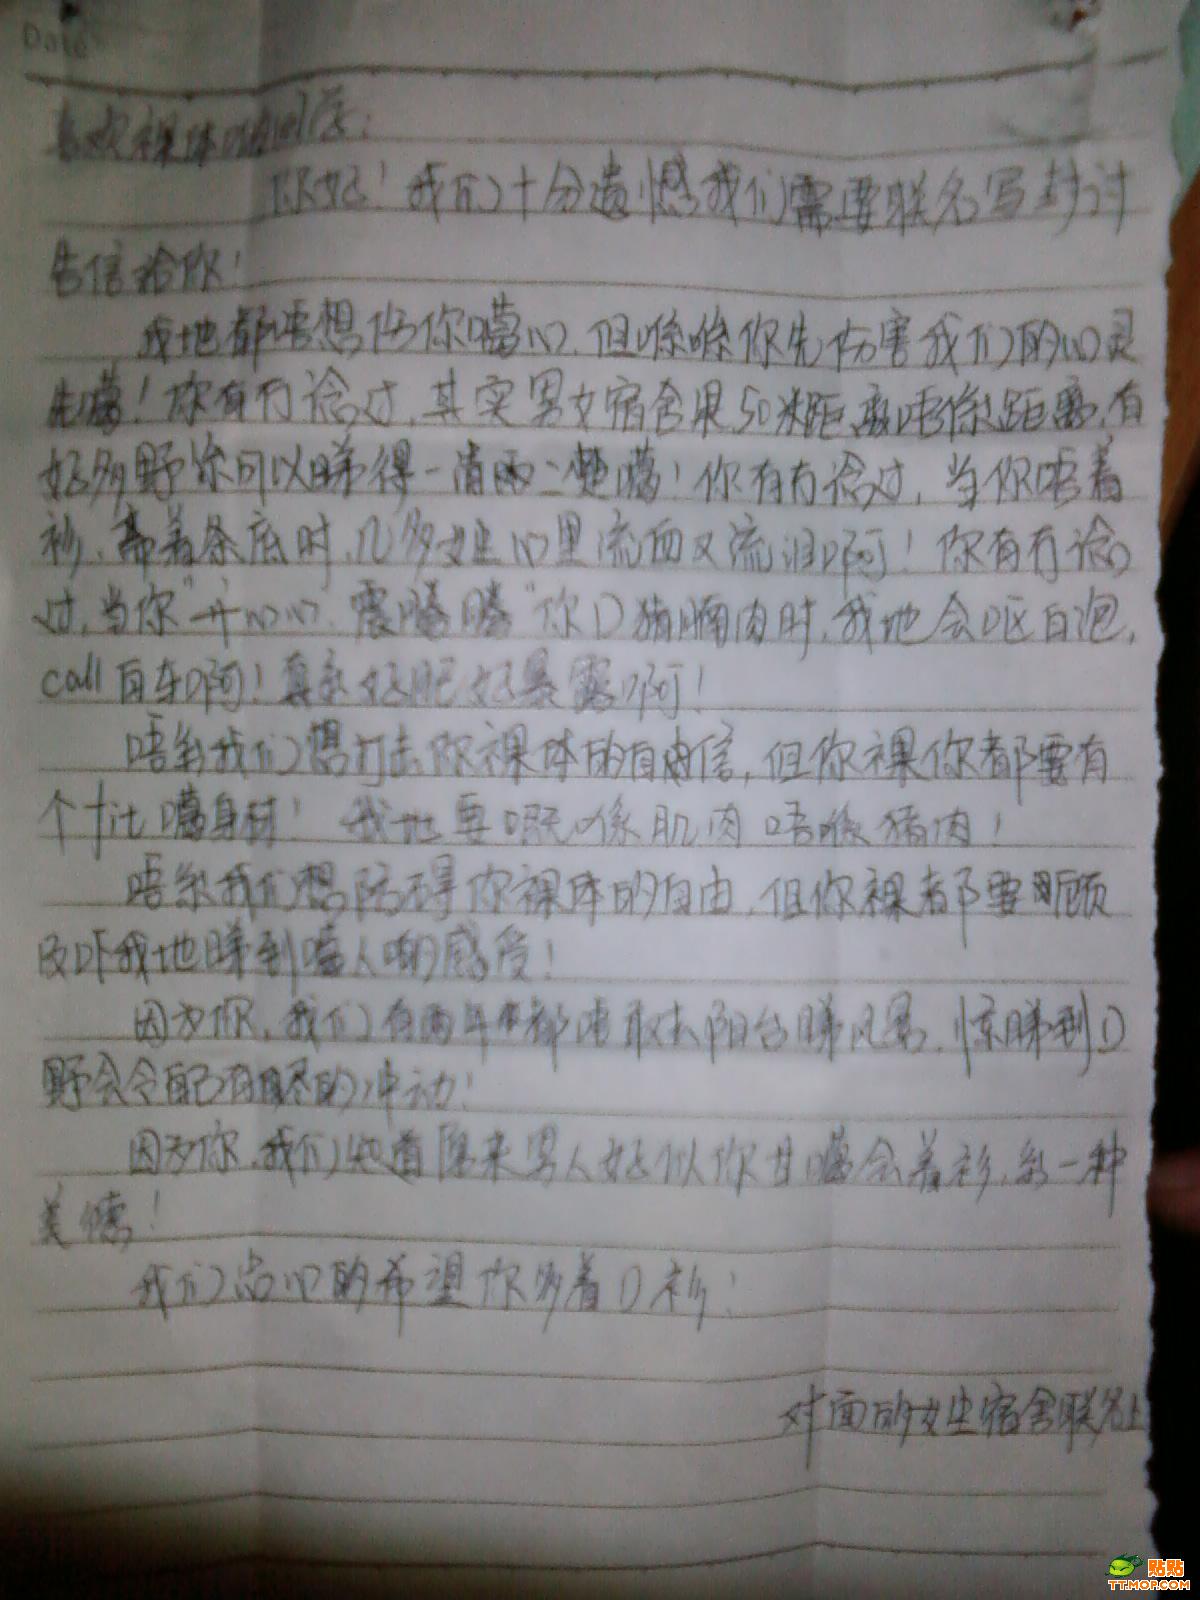 Date
喜欢裸体的同学：
你好！我们十分遗憾我们需要联名写封讨
告信给你！
我地都唔想伤你嘅心，但喺你先伤害我们的心灵
先嘅！你有冇谂过，其实男女宿舍果50米距离唔係距离，有
好多野你可以睇得一清两二楚嘅！你有冇谂过，当你唔着
衫、着条底时，几多女生心里流血又流泪啊！你有冇谂
过，当你"开心心、震腾腾"你D猪腩肉时，我地会呕白泡，
call白车啊！真系好肥好暴露啊！
唔系我们想打击你裸体的自信，但你裸你都要有
个fit嘅身材！我地要嘅係肌肉唔喺猪肉！
唔系我们想防碍你裸体的自由，但你裸都要顾
及吓我地睇到嘅人的感受！
因为你，我们有两年都唔敢去阳台睇风景，惊睇到D
野会令自己有的冲动！
因为你，我们知道原来男人好似你甘嘅会着衫，系一种
美德！
我们忠心的希望你多着D衫！
对面的女生宿舍联名上
贴贴
TT.MOP.COM